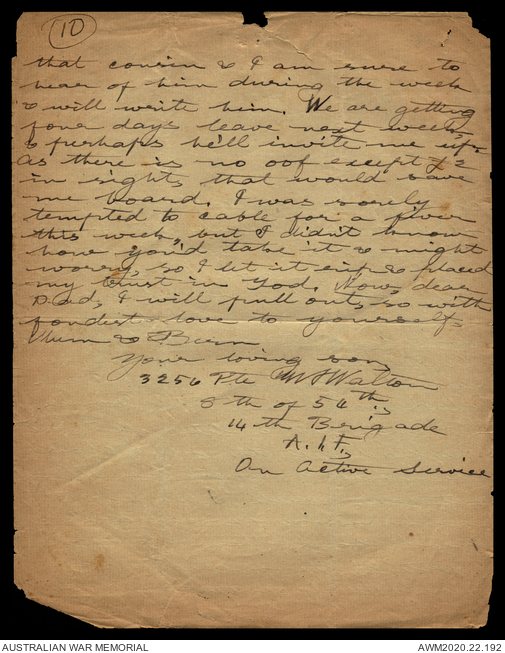 10
that cousin & I am sure to
hear of him during the week
& will write him. We are getting
four days leave next week,
& perhaps he'll invite me up,
as there is no oof except £2
in sight, that would save
me board. I was sorely
tempted to cable for a fiver
this week, but I didn't know
how you'd take it & might
worry, so I let it rip & placed
my trust in God. Now, dear
Dad, I will pull out, so with
fondest love to yourself,
Mum &
Your loving son,
3256 Pte W S Walton
8th of 54th
14th Brigade
A.I.F.
On Active Service
AUSTRALIAN WAR MEMORIAL
AWM2020.22.192